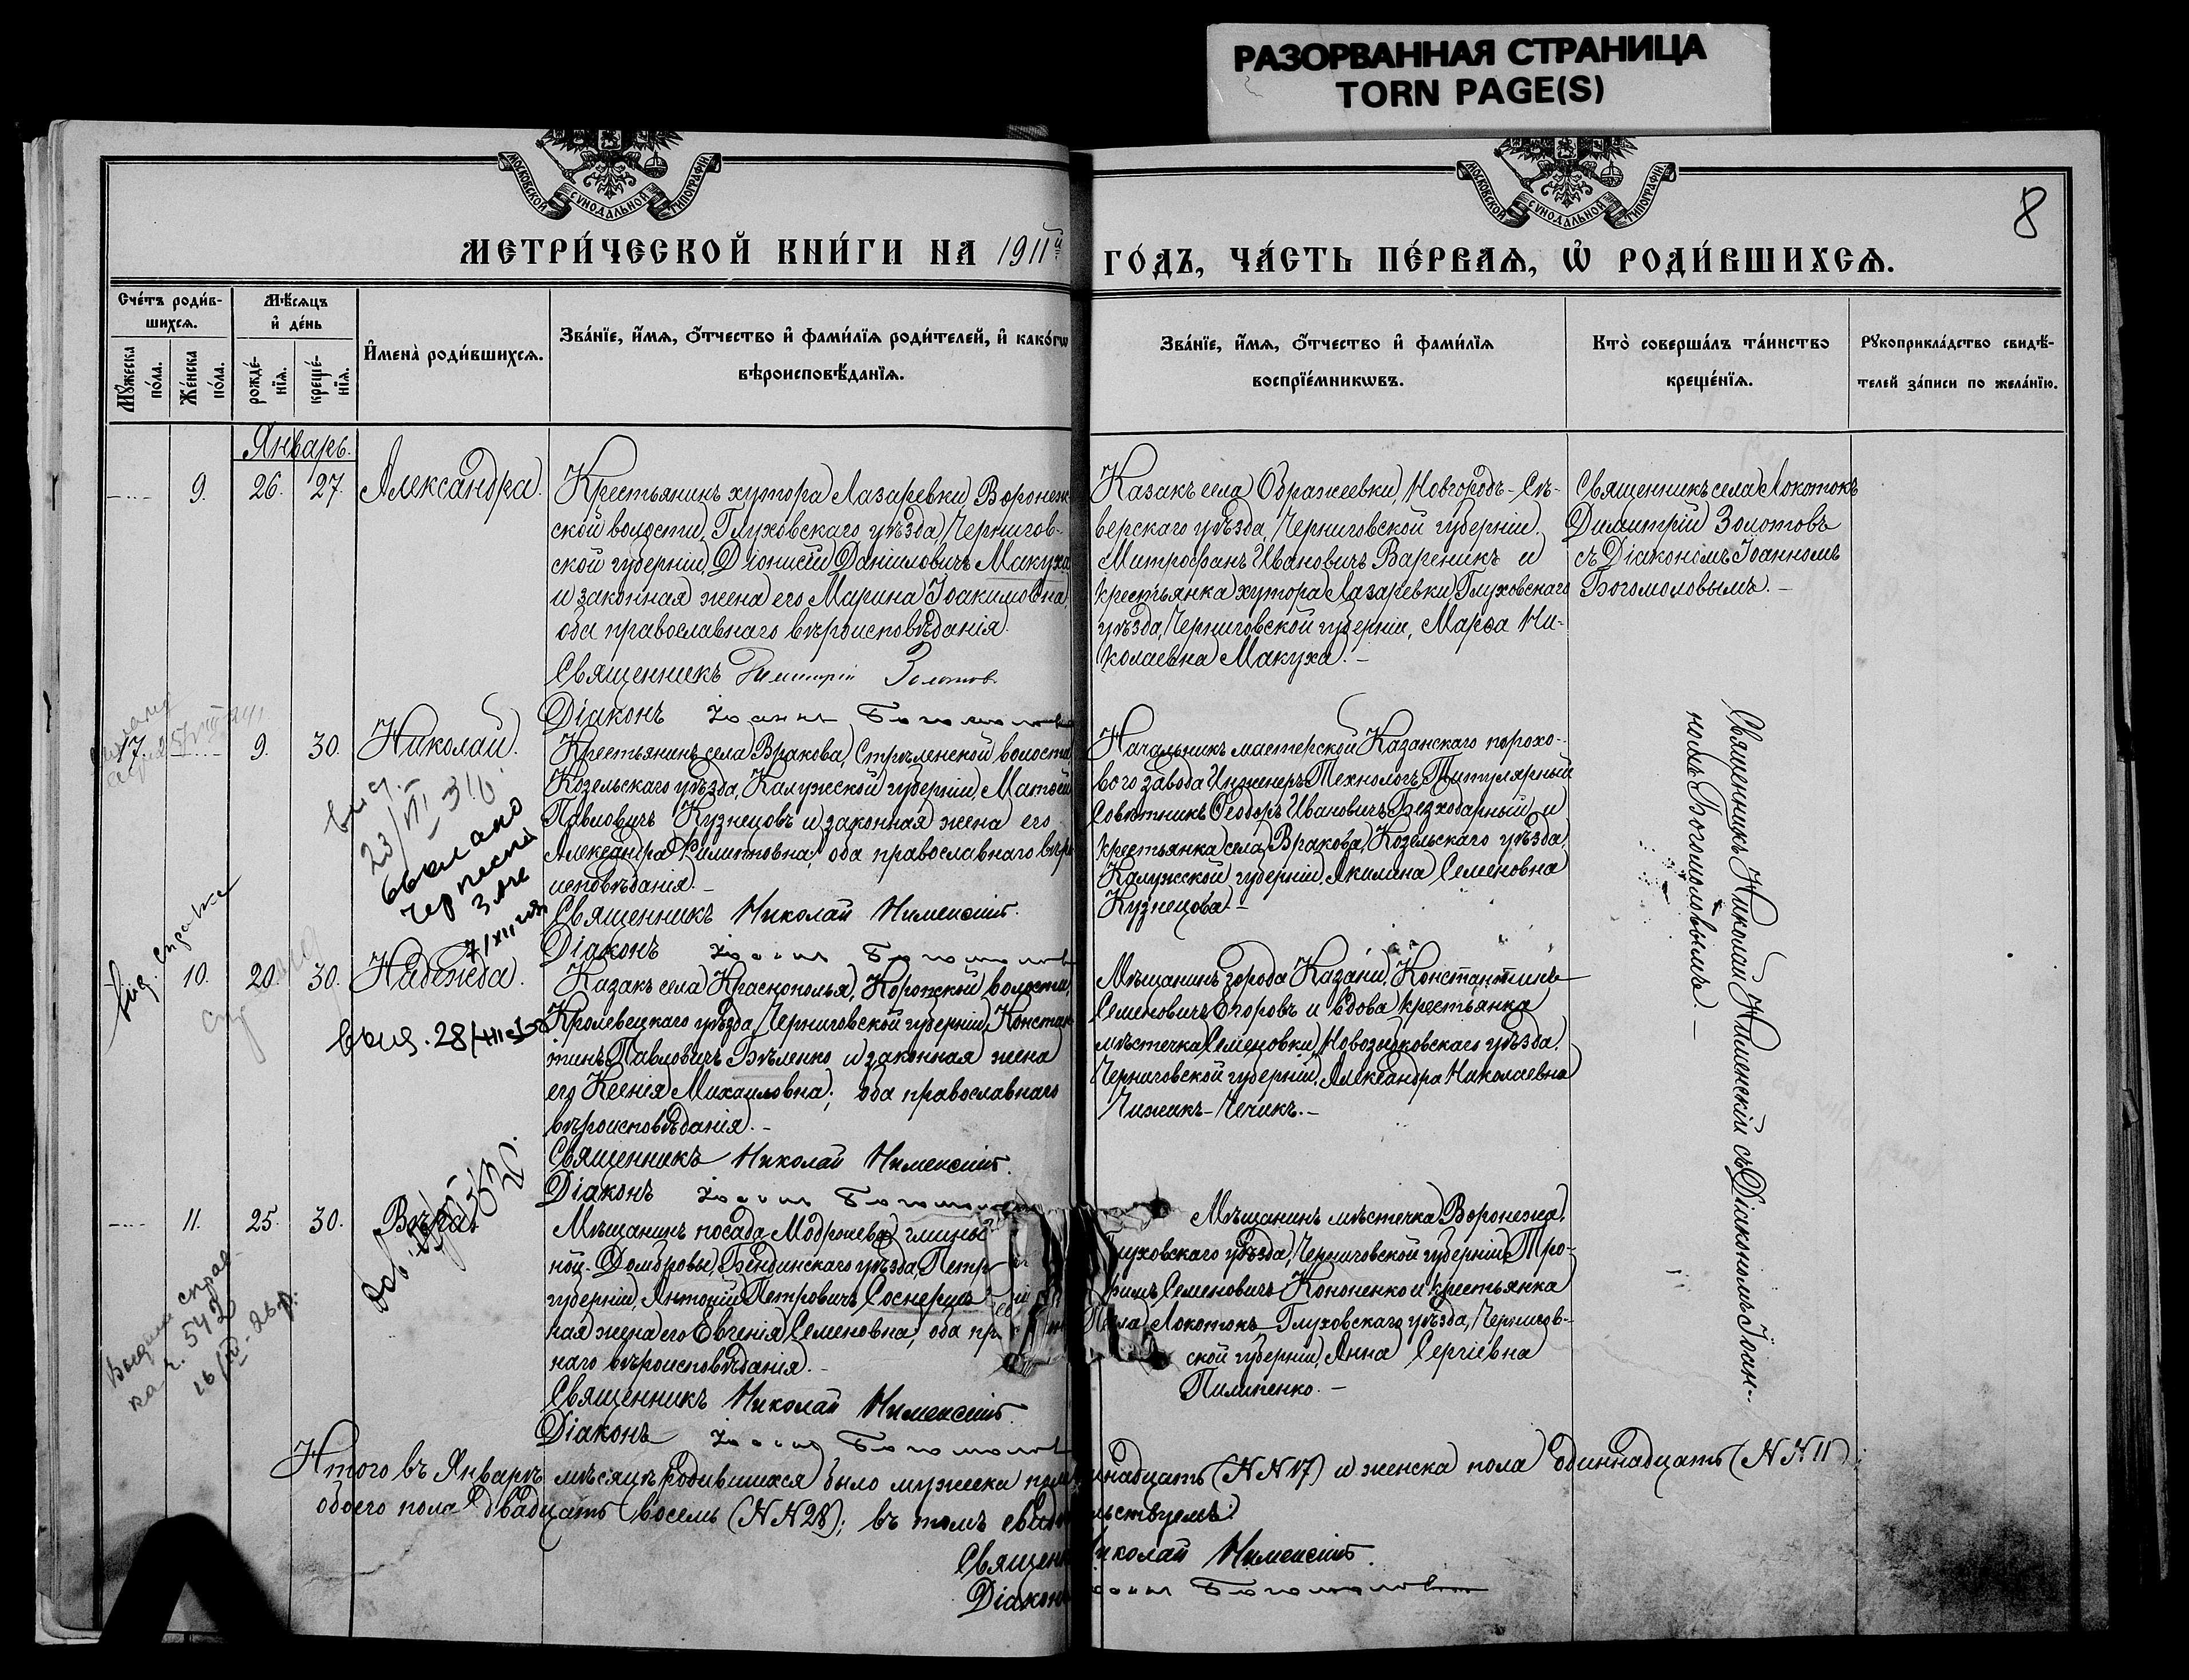 РАЗОРВАННАЯ СТРАНИЦА
TORN PAGE(S)
МОСКОВСКОЙ СѴНОДАЛЬНОЙ ТИПОГРАФІИ
МОСКОВСКОЙ СѴНОДАЛЬНОЙ ТИПОГРАФІИ
8
МЕТРИ́ЧЕСКОЙ КНИ́ГИ НА 1911й
ГО́ДЪ, ЧА́СТЬ ПЕ́РВАѦ, Ѡ҆ РОДИ́ВШИХСѦ.
Сче́тъ роди́в-
шихсѧ.
Мꙋ́жеска по́ла.
Же́нска по́ла.
Мѣ́сѧцъ
и҆ де́нь
рожде́-
нїѧ.
креще́-
нїѧ.
И҆мена̀ роди́вшихсѧ.
Зва́нїе, и҆́мѧ, ѻ҆́тчество и҆ фами́лїѧ роди́телей, и҆ како́гѡ
вѣроисповѣ́данїѧ.
Зва́нїе, и҆́мѧ, ѻ҆́тчество и҆ фами́лїѧ
воспрїе́мникѡвъ.
Кто̀ соверша́лъ та́инство
креще́нїѧ.
Рꙋкоприкла́дство свидѣ́-
телей за́писи по жела́нїю.
Январь.
9. 26. 27. Александра.
Крестьянинъ хутора Лазаревки, Воронеж-
ской волости, Глуховскаго уѣзда, Чернигов-
ской губерніи, Діонисій Даниловичъ Макуха
и законная жена его Марина Іоакимовна,
оба православнаго вѣроисповѣданія.
Священникъ Димитрій Золотовъ
Діаконъ Іоаннъ Богомоловъ
Казакъ села Ображеевки, Новгородъ-Сѣ-
верскаго уѣзда, Черниговской губерніи,
Митрофанъ Ивановичъ Вареникъ и
крестьянка хутора Лазаревки, Глуховскаго
уѣзда, Черниговской губерніи, Марѳа Ни-
колаевна Макуха. –
Священникъ села Локотокъ
Димитрій Золотовъ
съ Діакономъ Іоанномъ
Богомоловымъ. –
17. 9. 30. Николай.
Крестьянинъ села Вракова, Стрѣленской волости,
Козельскаго уѣзда, Калужской губерніи, Матѳей
Павловичъ Кузнецовъ и законная жена его
Александра Филипповна, оба православнаго вѣро
исповѣданія. –
Священникъ Николай Нименскій.
Діаконъ Іоаннъ Богомоловъ
Начальникъ мастерской Казанскаго порохо-
вого завода Инженеръ Технологъ, Титулярный
Совѣтникъ Ѳеодоръ Ивановичъ Безходарный и
крестьянка села Вракова, Козельскаго уѣзда,
Калужской губерніи, Акилина Семеновна
Кузнецова. –
Священникъ Николай Нименскій съ Діакономъ Іоан-
номъ Богомоловымъ. –
10. 20. 30. Надежда.
Казакъ села Краснополья, Коропской волости,
Кролевецкаго уѣзда, Черниговской губерніи, Констан
тинъ Павловичъ Бѣленко и законная жена
его Ксенія Михаиловна; оба православнаго
вѣроисповѣданія. –
Священникъ Николай Нименскій.
Діаконъ Іоаннъ Богомоловъ
Мѣщанинъ города Казани, Константинъ
Семеновичъ Егоровъ и вдова крестьянка
мѣстечка Семеновки, Новозыбковскаго уѣзда,
Черниговской губерніи, Александра Николаевна
Чижикъ-Чечикъ. –
11. 25. 30. Вѣра.
Мѣщанинъ посада Модржева,
ной-Домбровы, Бендинскаго уѣзда, Петр
губерніи, Антоній Петровичъ
ная жена его Евгенія Семеновна, оба пр
наго вѣроисповѣданія. –
Священникъ Николай Нименскій.
Діаконъ Іоаннъ Богомоловъ
Мѣщанинъ мѣстечка Воронежа,
Глуховскаго уѣзда, Черниговской губерніи, Тро-
фимъ Семеновичъ Кононенко и крестьянка
села Локотокъ Глуховскаго уѣзда, Чернигов-
ской губерніи, Анна Сергіевна
Пилипенко. –
Итого въ Январѣ мѣсяцѣ родившихся было мужеска пола надцать (NN 17) и женска пола одиннадцать (NN 11);
обоего пола двадцать восемь (NN 28); въ томъ свидѣтельствуемъ:
Священ Николай Нименскій.
Діаконъ Іоаннъ Богомоловъ